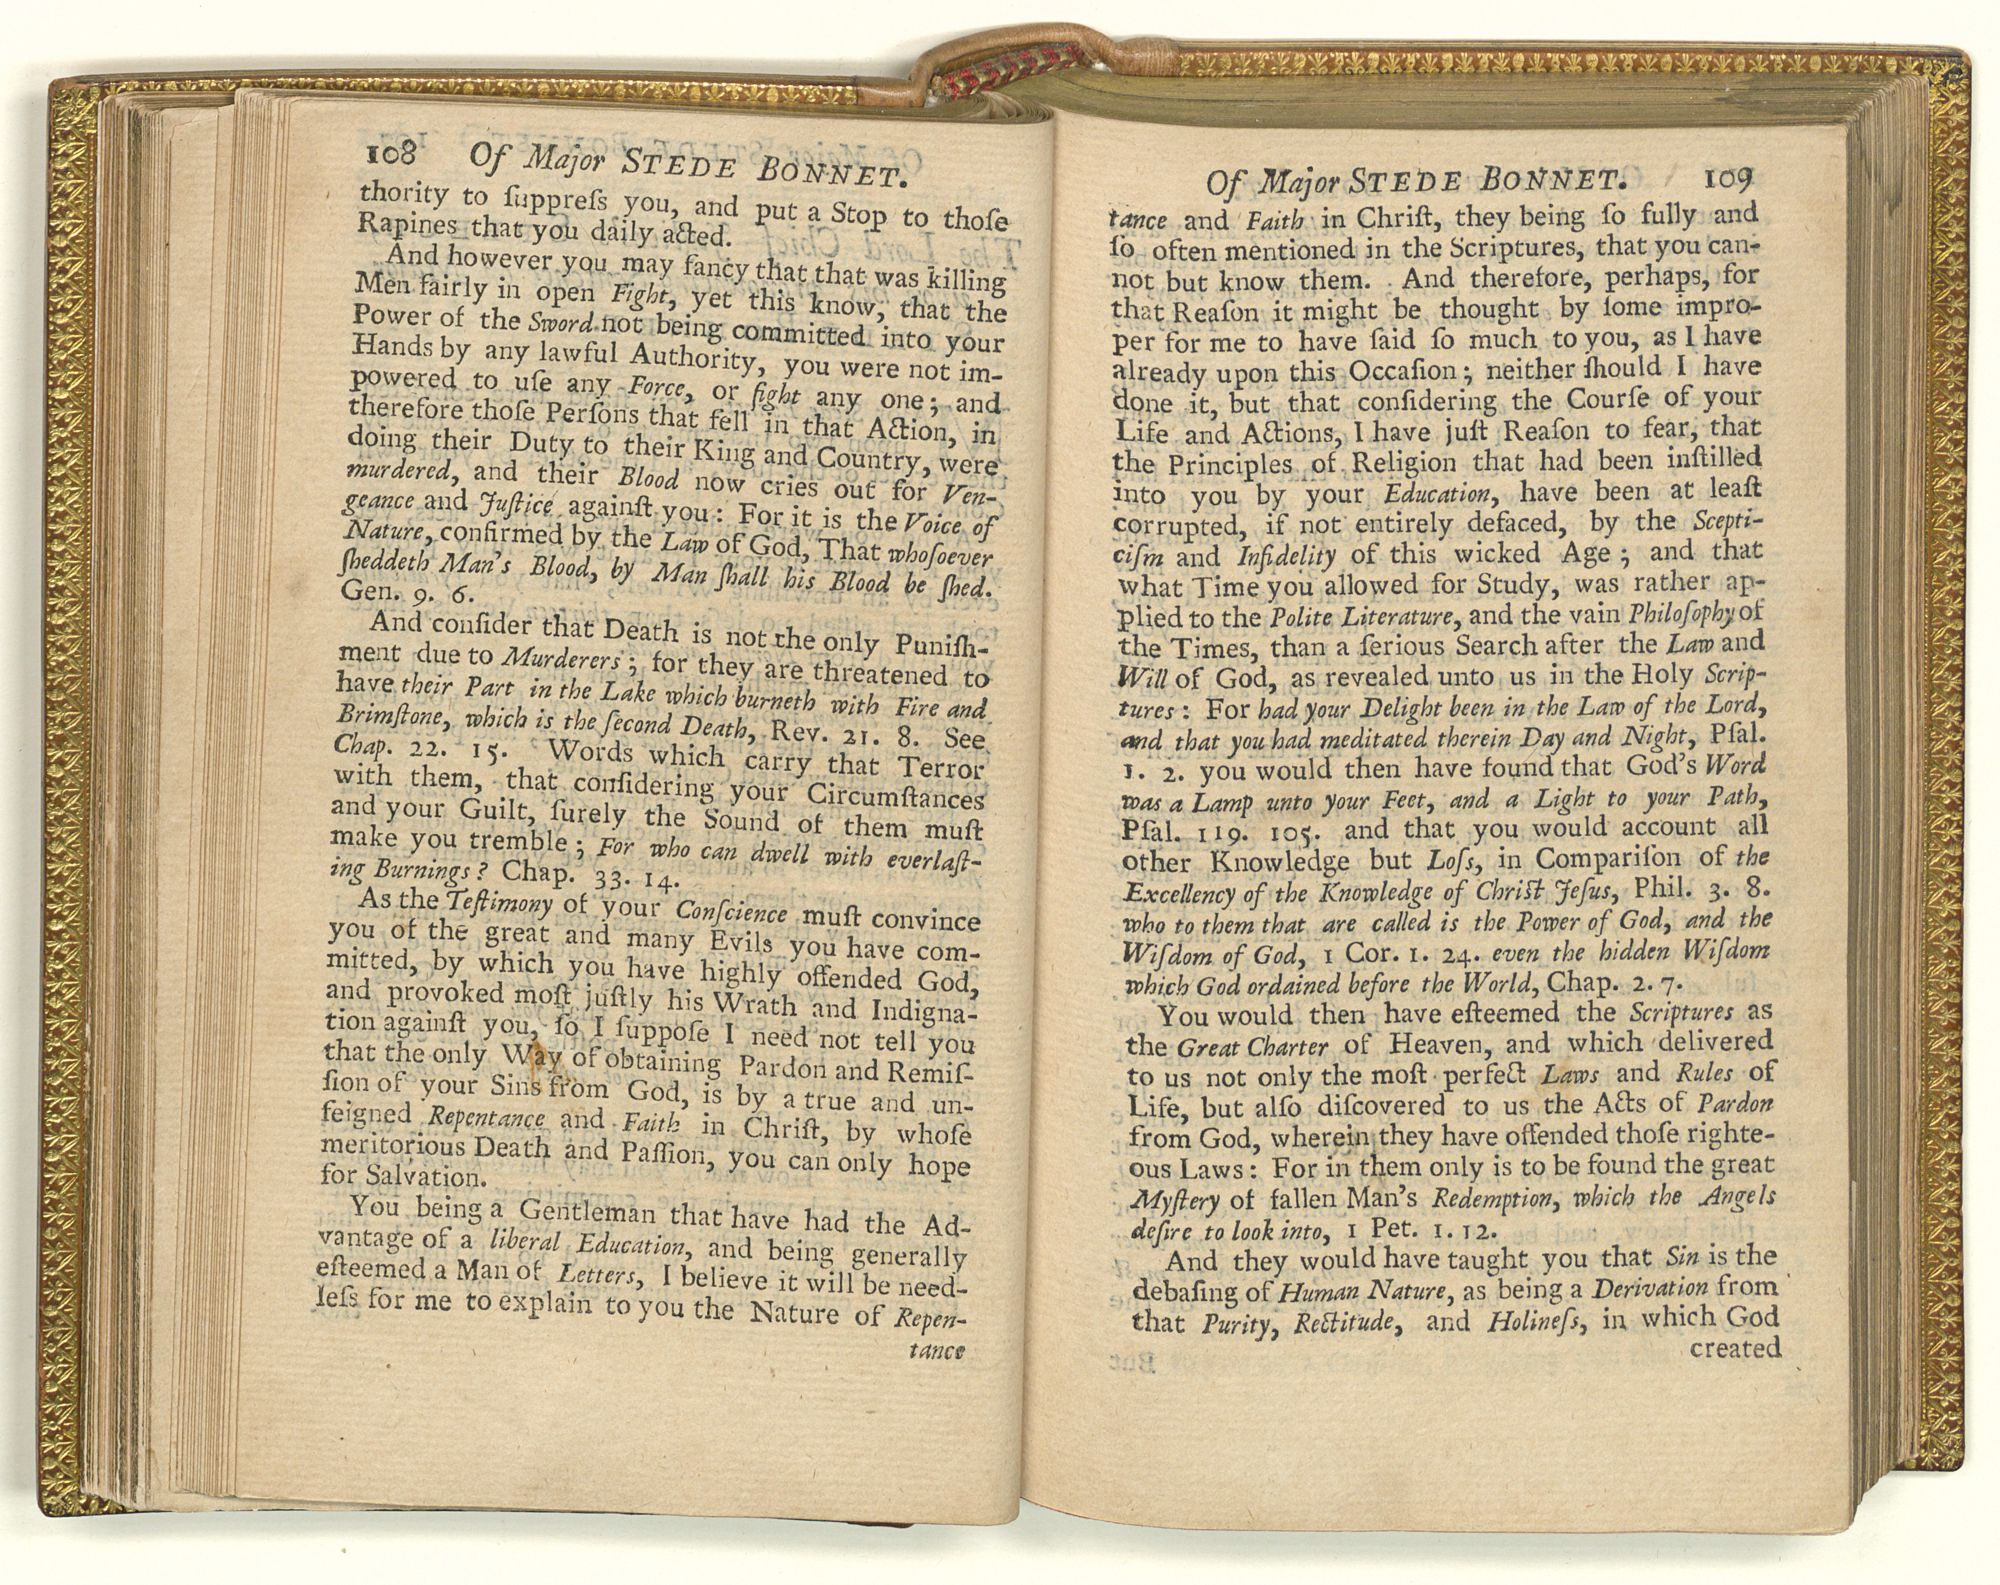 108 Of Major STEDE BONNET.
thority to ſuppreſs you, and put a Stop to thoſe
Rapines that you daily acted.
And however you may fancy that that was killing
Men fairly in open Fight, yet this know, that the
Power of the Sword not being committed into your
Hands by any lawful Authority, you were not im-
powered to uſe any Force, or fight any one; and
therefore thoſe Perſons that fell in that Action, in
doing their Duty to their King and Country, were
murdered, and their Blood now cries out for Ven-
geance and Juſtice againſt you: For it is the Voice of
Nature, confirmed by the Law of God, That whoſoever
ſheddeth Man's Blood, by Man ſhall his Blood be ſhed.
Gen. 9. 6.
And conſider that Death is not the only Puniſh-
ment due to Murderers; for they are threatened to
have their Part in the Lake which burneth with Fire and
Brimſtone, which is the ſecond Death, Rev. 21. 8. See
Chap. 22. 15. Words which carry that Terror
with them, that conſidering your Circumſtances
and your Guilt, ſurely the Sound of them muſt
make you tremble; For who can dwell with everlaſt-
ing Burnings? Chap. 33. 14.
As the Teſtimony of your Conſcience muſt convince
you of the great and many Evils you have com-
mitted, by which you have highly offended God,
and provoked moſt juſtly his Wrath and Indigna-
tion againſt you, ſo I ſuppoſe I need not tell you
that the only Way of obtaining Pardon and Remiſ-
ſion of your Sins from God, is by a true and un-
feigned Repentance and Faith in Chriſt, by whoſe
meritorious Death and Paſſion, you can only hope
for Salvation.
You being a Gentleman that have had the Ad-
vantage of a liberal Education, and being generally
eſteemed a Man of Letters, I believe it will be need-
leſs for me to explain to you the Nature of Repen-
tance
Of Major STEDE BONNET. 109
tance and Faith in Chriſt, they being ſo fully and
ſo often mentioned in the Scriptures, that you can-
not but know them. And therefore, perhaps, for
that Reaſon it might be thought by ſome impro-
per for me to have ſaid ſo much to you, as I have
already upon this Occaſion; neither ſhould I have
done it, but that conſidering the Courſe of your
Life and Actions, I have juſt Reaſon to fear, that
the Principles of Religion that had been inſtilled
into you by your Education, have been at leaſt
corrupted, if not entirely defaced, by the Scepti-
ciſm and Infidelity of this wicked Age; and that
what Time you allowed for Study, was rather ap-
plied to the Polite Literature, and the vain Philoſophy of
the Times, than a ſerious Search after the Law and
Will of God, as revealed unto us in the Holy Scrip-
tures: For had your Delight been in the Law of the Lord,
and that you had meditated therein Day and Night, Pſal.
1. 2. you would then have found that God's Word
was a Lamp unto your Feet, and a Light to your Path,
Pſal. 119. 105. and that you would account all
other Knowledge but Loſs, in Compariſon of the
Excellency of the Knowledge of Chriſt Jeſus, Phil. 3. 8.
who to them that are called is the Power of God, and the
Wiſdom of God, 1 Cor. 1. 24. even the hidden Wiſdom
which God ordained before the World, Chap. 2. 7.
You would then have eſteemed the Scriptures as
the Great Charter of Heaven, and which delivered
to us not only the moſt perfect Laws and Rules of
Life, but alſo diſcovered to us the Acts of Pardon
from God, wherein they have offended thoſe righte-
ous Laws: For in them only is to be found the great
Myſtery of fallen Man's Redemption, which the Angels
deſire to look into, 1 Pet. 1. 12.
And they would have taught you that Sin is the
debaſing of Human Nature, as being a Derivation from
that Purity, Rectitude, and Holineſs, in which God
created